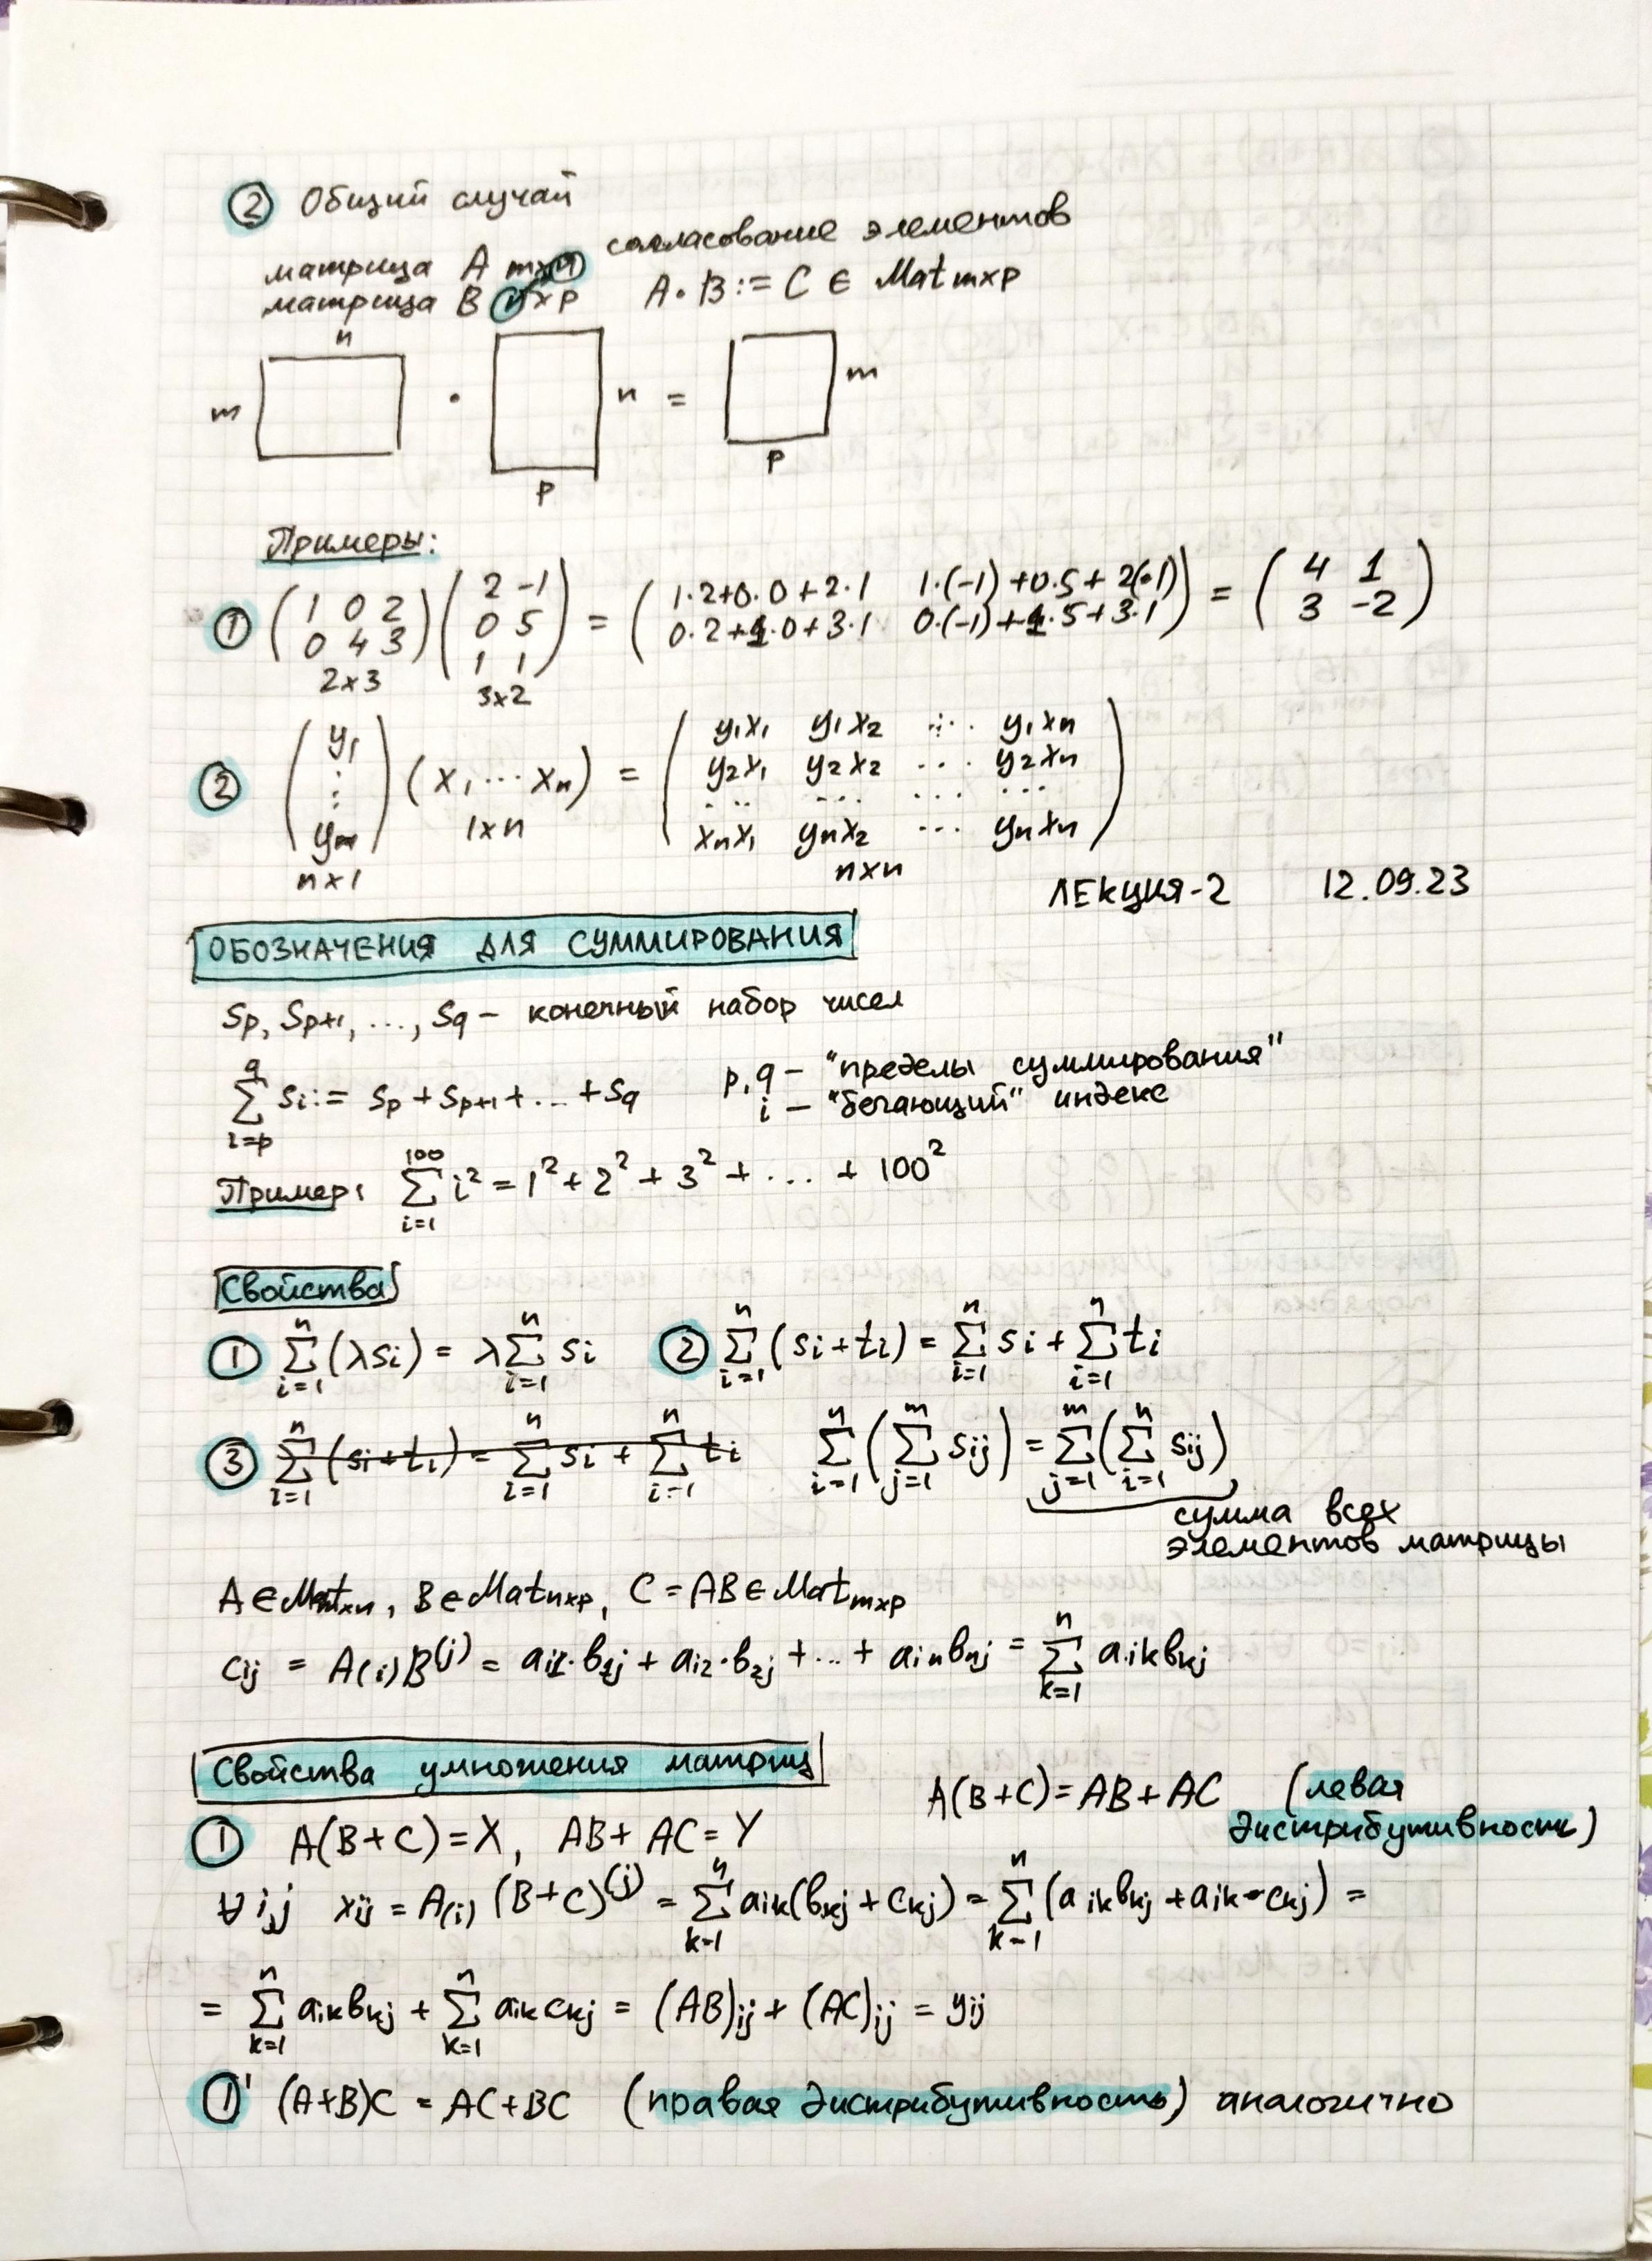 ② Общий случай
согласование элементов
матрица A m×n
матрица B n×p A·B := C ∈ Mat m×p
n
m · n = m
p p
Примеры:
① (1 0 2; 0 4 3) (2 -1; 0 5; 1 1) = (1·2+0·0+2·1 1·(-1)+0·5+2(·1); 0·2+1·0+3·1 0·(-1)+1·5+3·1) = (4 1; 3 -2)
2×3 3×2
② (y₁ ⋮ yₙ) (x₁ ⋯ xₙ) = (y₁x₁ y₁x₂ ⋯ y₁xₙ; y₂x₁ y₂x₂ ... y₂xₙ; ... ... ... ...; xₙx₁ yₙx₂ ... yₙxₙ)
n×1 1×n n×n
ЛЕКЦИЯ-2 12.09.23
ОБОЗНАЧЕНИЯ ДЛЯ СУММИРОВАНИЯ
Sp, Sp+1, ..., Sq – конечный набор чисел
∑_{i=p}^{q} si := sp + sp+1 + ... + sq p, q – "пределы суммирования"
i – "бегающий" индекс
Пример: ∑_{i=1}^{100} i² = 1² + 2² + 3² + ... + 100²
Свойства
① ∑_{i=1}^{n} (λsi) = λ∑_{i=1}^{n} si ② ∑_{i=1}^{n} (si+ti) = ∑_{i=1}^{n} si + ∑_{i=1}^{n} ti
③ ∑_{i=1}^{n} (si+ti) = ∑_{i=1}^{n} si + ∑_{i=1}^{n} ti ∑_{i=1}^{n} (∑_{j=1}^{m} sij) = ∑_{j=1}^{m} (∑_{i=1}^{n} sij)
сумма всех
элементов матрицы
A ∈ Matm×n, B ∈ Matn×p, C = AB ∈ Matm×p
cij = A(i)B^(j) = ai1·b1j + ai2·b2j + ... + ainbnj = ∑_{k=1}^{n} aikbkj
Свойства умножения матриц
A(B+C) = AB + AC (левая
дистрибутивность)
① A(B+C) = X, AB + AC = Y
∀ i,j xij = A(i) (B+C)^(j) = ∑_{k=1}^{n} aik(bkj + ckj) = ∑_{k=1}^{n} (aikbkj + aik·ckj) =
= ∑_{k=1}^{n} aikbkj + ∑_{k=1}^{n} aikckj = (AB)ij + (AC)ij = yij
①' (A+B)C = AC+BC (правая дистрибутивность) аналогично